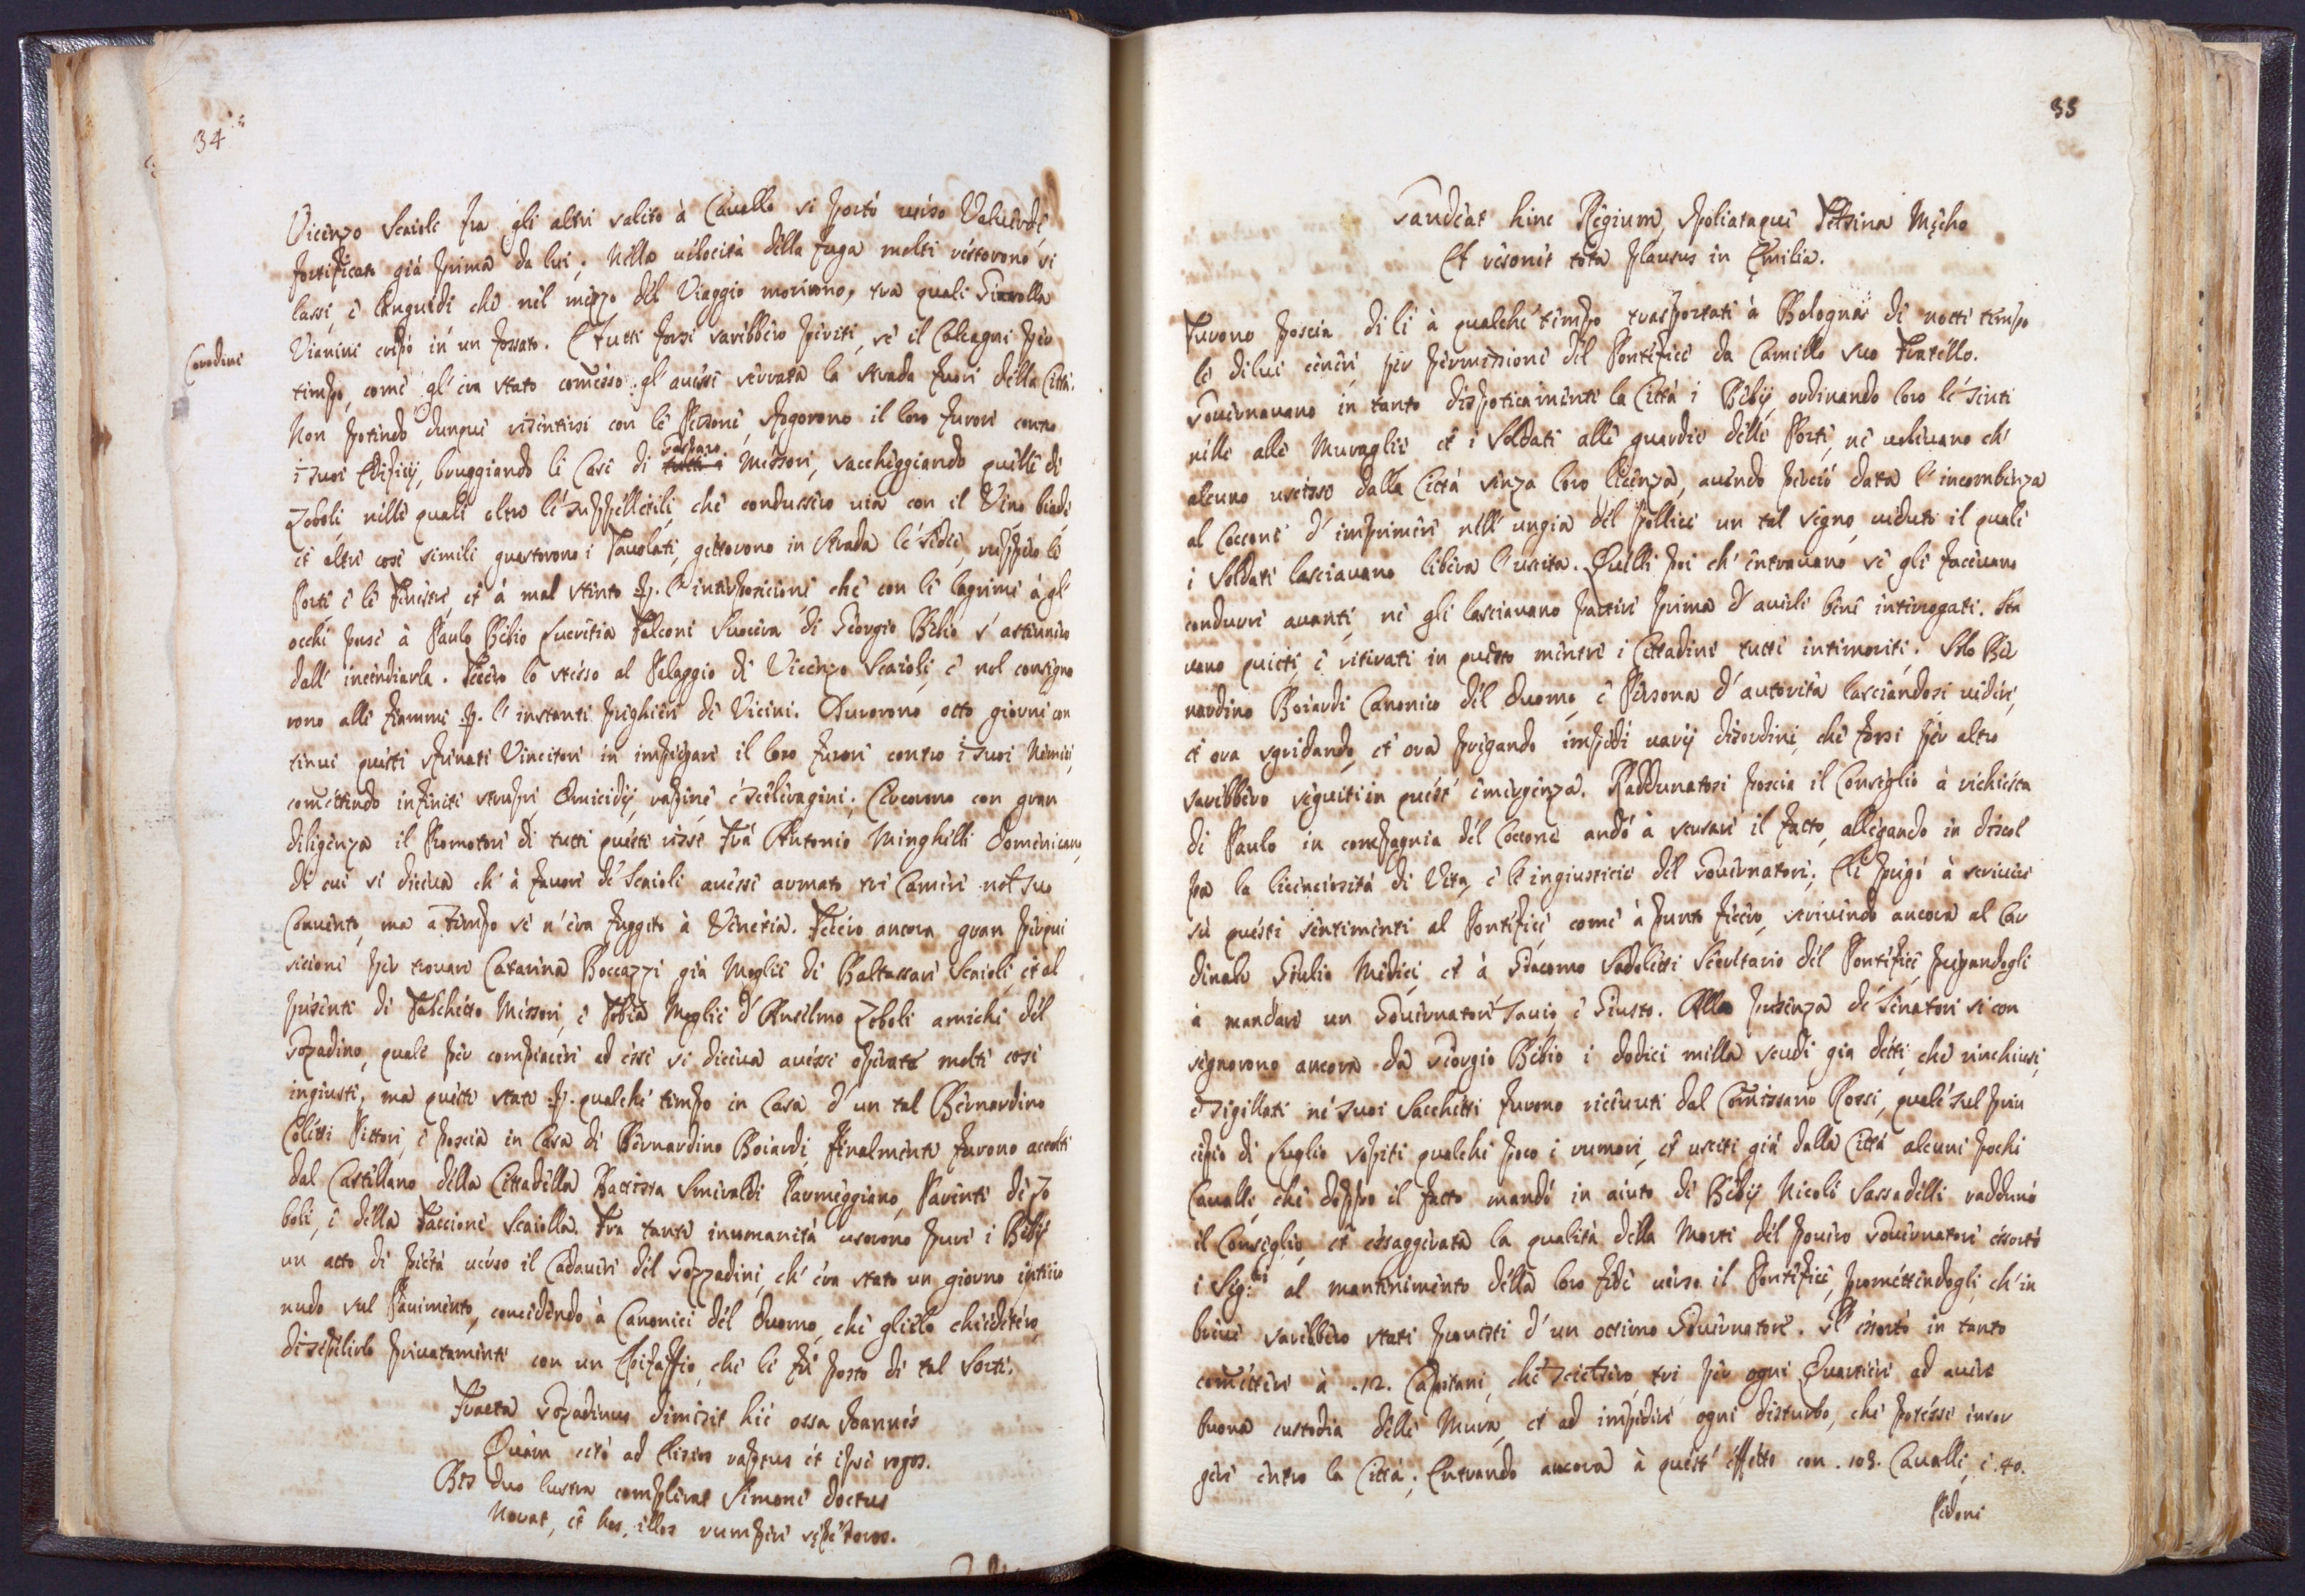 34
Vicenzo Scaioli fra gli altri salito à Cavallo si portò verso Valverde
fortificato già prima da lui. Nella velocità della fuga molti restorono sì
lassi, e languidi che nel mezzo del Viaggio morirono, tra quali
Vianini crepò in un fossato. E tutti forsi sarebbero periti, se il Calcagni per
Carodini
tempo, come gl'era stato comesso gl'avesse serrata la strada fuori della Città.
Non potendo dunque risentirsi con le Persone, sfogorono il loro furore contro
i suoi Edificij, bruggiando le Case di Gasparo Messori, saccheggiando quelle di
Zoboli nelle quali oltre le suppellettili, che condussero via con il Vino, biade,
et altre cose simili guastorono i Tavolati, gettorono in strada le sedie, ruppero le
Porte e le Fenestre, et à mal stento p. l'interposicione che con le lagrime à gl'
occhi prese à Paulo Bebio Lucretia Falconi Suocera di Giorgio Bebio s'astennero
dall'incendiarla. Fecero lo stesso al Palaggio di Vicenzo Scaioli, e nol consegno
rono alle fiamme p. le instanti preghiere de Vicini. Durorono otto giorni con
tinui questi sfrenati Vincitori in impiegare il loro furore contro i suoi Nemici,
comettendo infiniti strupri, Omicidij, rapine, e sceleragini. Cercorono con gran
diligenza il Promotore di tutti queste risse Frà Antonio Minghelli Domenicano,
di cui si diceva ch'à favore de Scaioli avesse armato tre Camere nel suo
Convento, ma a tempo se n'era fuggito à Venetia. Fecero ancora gran perqui
sicione per trovare Catarina Boccazzi già Moglie di Baltassare Scaioli, et al
presente di Falchetto Messori, e Febia Moglie d'Anselmo Zoboli amiche del
Gozadino, quale per compiacere ad esse si diceva avesse operate molte cose
ingiuste, ma queste state p. qualche tempo in Casa d'un tal Bernardino
Coletti Pittore, e poscia in Casa di Bernardino Boiardi, finalmente furono accolte
dal Castellano della Cittadella Smiraldi Parmeggiano, Parente de Zo
boli, e della Faccione Scaiolla. Fra tante inumanità usorono pure i Bebij
un atto di pietà verso il Cadavere del Gozzadini, ch'era stato un giorno intiero
nudo sul Pavimento, concedendo à Canonici del Duomo, che glielo chiedettero,
di sepelirlo privatamente con un Epitaffio, che li fù posto di tal sorte.
Fracta Gozadinus dimisit hic ossa Joannes
Quam citò ad Elisios raptus et ipse rogos.
Bis duo lustra complerat Simone doctus
Novat, et hos, illos rumpere
35
Gaudeat hinc Regium, spoliataque Felsina
Et resonet tota plausus in Emilia.
Furono poscia di lì à qualche tempo trasportati à Bologna di notte tempo
le di lui ceneri per permissione del Pontefice da Camillo suo Fratello.
Governavano in tanto dispoticamente la Città i Bebij ordinando loro le senti
nelle alle Muraglie et i Soldati alle guardie delle Porte, ne volevano ch'
alcuno uscisse dalla Città senza loro licenza, avendo perciò data l'incombenza
al Coccone d'imprimere nell'ungia del pollice un tal segno, veduto il quale
i Soldati lasciavano libera l'uscita. Quelli poi ch'entravano se gli facevano
condurre avanti, ne gli lasciavano partire prima d'averli bene interrogati. Sta
vano quieti, e ritirati in questo mentre i Cittadini tutti intimoriti. Solo Ber
nardino Boiardi Canonico del Duomo, e Persona d'autorità lasciandosi vedere,
et ora sgridando, et ora pregando impedì varij disordini, che forsi per altro
sarebbero seguiti in quest'emergenza. Raddunatosi poscia il Consiglio à richiesta
di Paulo in compagnia del Coccone andò à scusare il fatto, allegando in discol
pa la licenciosità di Vita, e le ingiusticie del Governatore. Li pregò à scrivere
sù questi sentimenti al Pontefice, come à punto fecero, scrivendo ancora al Car
dinale Giulio Medici, et à Giacomo Sadoletti Secretario del Pontefice, pregandogli
à mandare un Governatore savio, e Giusto. Alla presenza de Senatori si con
segnorono ancora da Giorgio Bebio i dodici milla scudi già detti, che rinchiusi,
e sigillati ne suoi Sacchetti furono ricevuti dal Comissario Rossi, quale sul prin
cipio di Luglio sopiti qualche poco i rumori, et usciti già dalla Città alcuni pochi
Cavalli, che doppo il fatto mandò in aiuto de Bebij Nicolò Sassadelli raddunò
il Consiglio, et essaggerata la qualità della Morte del povero Governatore essortò
i Sig.ri al mantenimento della loro fede verso il Pontefice, promettendogli, ch'in
breve sarebbero stati provisti d'un ottimo Governatore. Gl'essortò in tanto
comettere à .12. Capitani, che scielsero tre per ogni Quartiere ad avere
buona custodia delle Mura, et ad impedire ogni disturbo, che potesse insor
gere entro la Città. Entrando ancora à quest'effetto con .108. Cavalli, e .40.
Pedoni